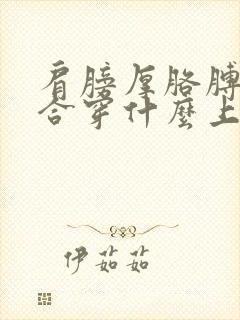 肩膀厚胳膊
合穿什麼上
伊茹茹